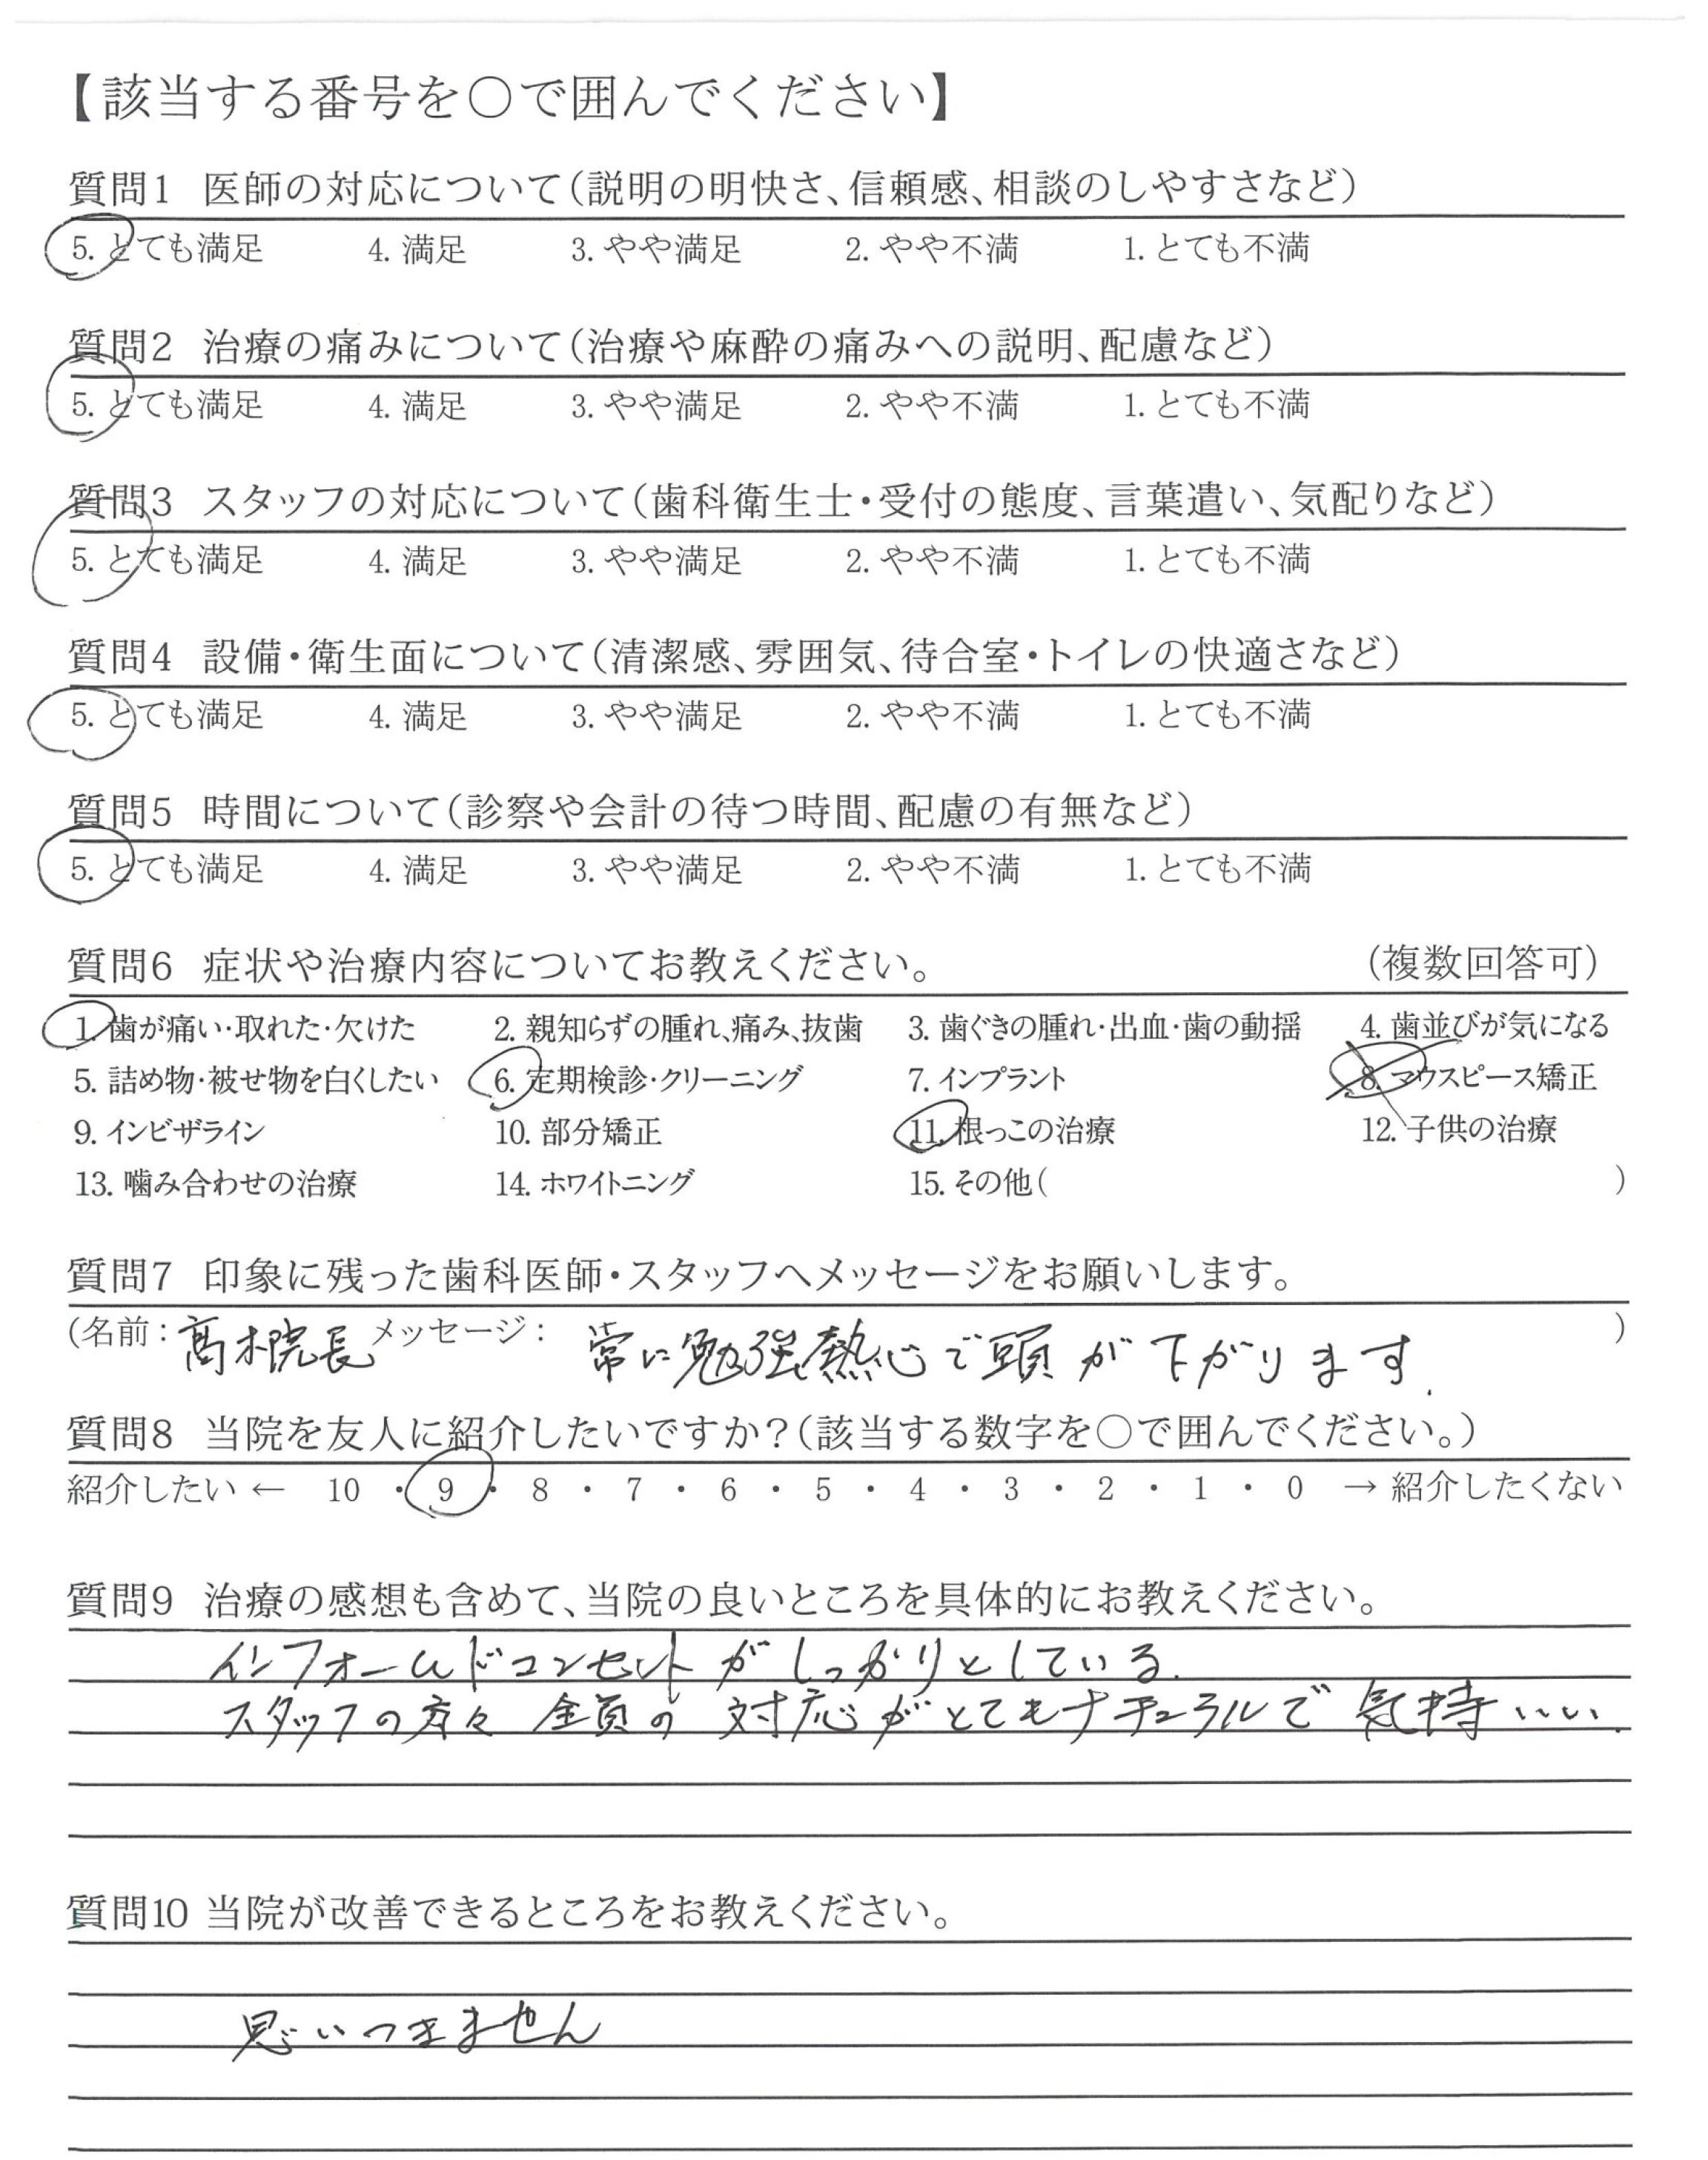 【該当する番号を○で囲んでください】
質問1 医師の対応について(説明の明快さ、信頼感、相談のしやすさなど)
5. とても満足 4. 満足 3. やや満足 2. やや不満 1. とても不満
質問2 治療の痛みについて(治療や麻酔の痛みへの説明、配慮など)
5. とても満足 4. 満足 3. やや満足 2. やや不満 1. とても不満
質問3 スタッフの対応について(歯科衛生士・受付の態度、言葉遣い、気配りなど)
5. とても満足 4. 満足 3. やや満足 2. やや不満 1. とても不満
質問4 設備・衛生面について(清潔感、雰囲気、待合室・トイレの快適さなど)
5. とても満足 4. 満足 3. やや満足 2. やや不満 1. とても不満
質問5 時間について(診察や会計の待つ時間、配慮の有無など)
5. とても満足 4. 満足 3. やや満足 2. やや不満 1. とても不満
質問6 症状や治療内容についてお教えください。 (複数回答可)
1. 歯が痛い・取れた・欠けた 2. 親知らずの腫れ、痛み、抜歯 3. 歯ぐきの腫れ・出血・歯の動揺 4. 歯並びが気になる
5. 詰め物・被せ物を白くしたい 6. 定期検診・クリーニング 7. インプラント 8. マウスピース矯正
9. インビザライン 10. 部分矯正 11. 根っこの治療 12. 子供の治療
13. 噛み合わせの治療 14. ホワイトニング 15. その他( )
質問7 印象に残った歯科医師・スタッフへメッセージをお願いします。
(名前：髙木院長 メッセージ： 常に勉強熱心で頭が下がります. )
質問8 当院を友人に紹介したいですか？(該当する数字を○で囲んでください。)
紹介したい ← 10 ・ 9 ・ 8 ・ 7 ・ 6 ・ 5 ・ 4 ・ 3 ・ 2 ・ 1 ・ 0 → 紹介したくない
質問9 治療の感想も含めて、当院の良いところを具体的にお教えください。
インフォームドコンセントがしっかりとしている.
スタッフの方々 全員の 対応がとてもナチュラルで 気持いい.
質問10 当院が改善できるところをお教えください。
思いつきません